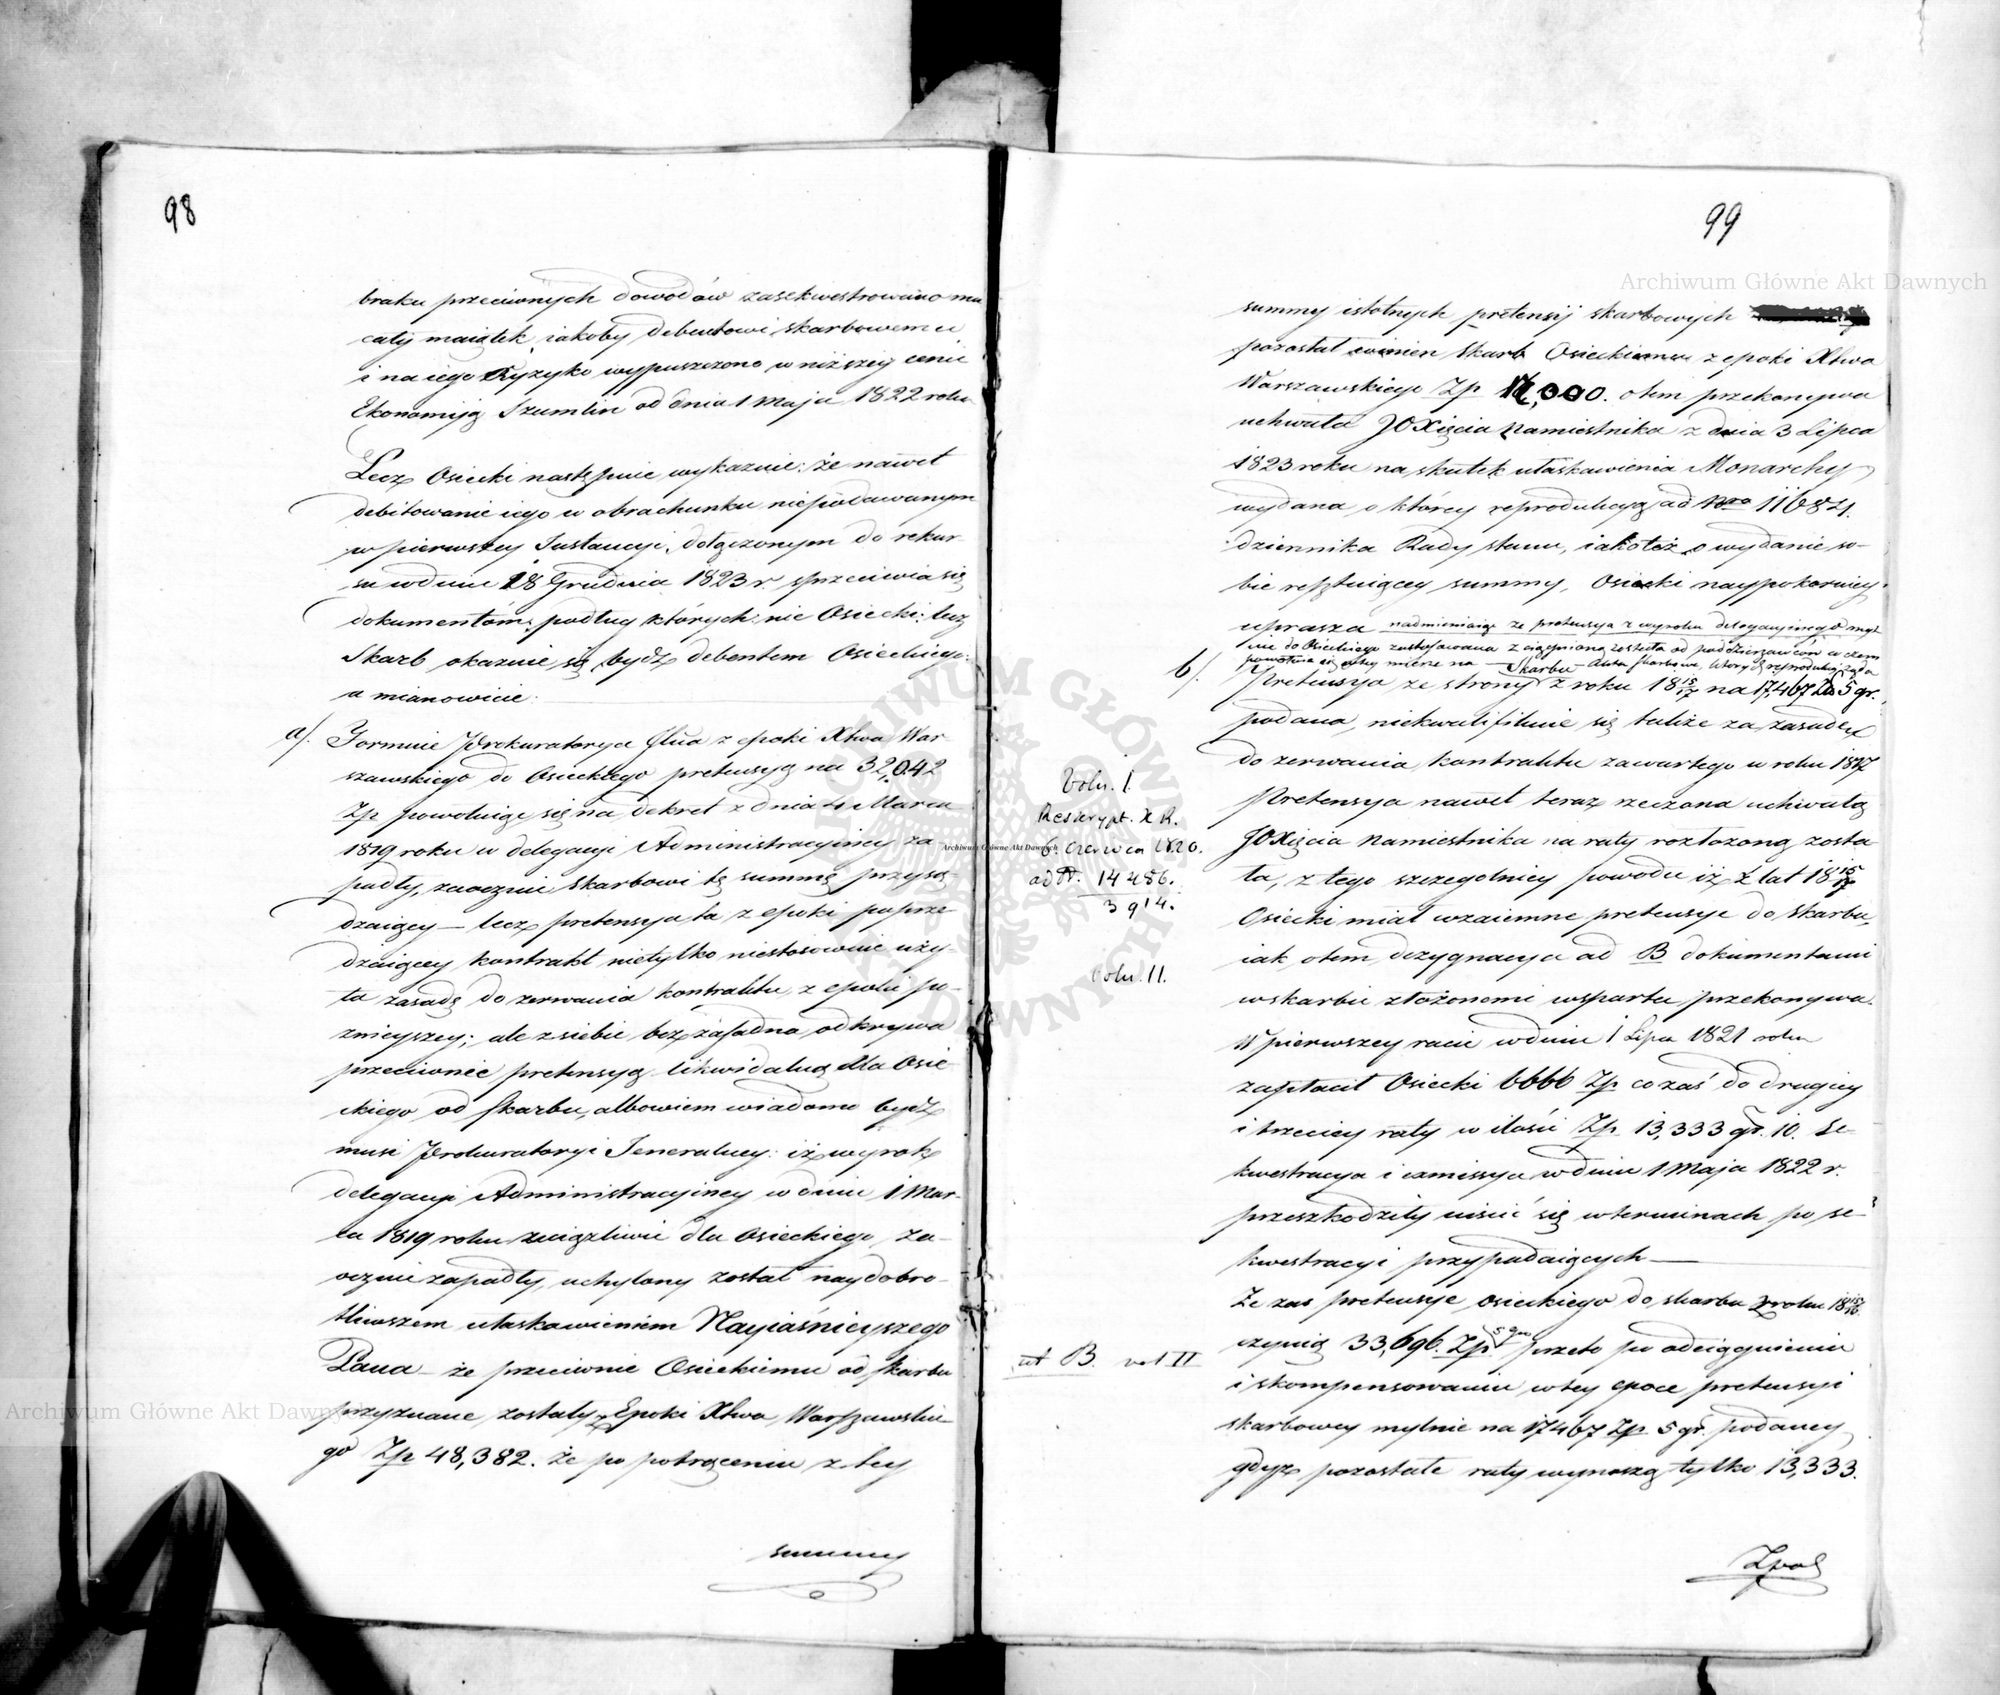 98
braku przeciwnych dowodów zasekwestrowano mu
cały maiątek, iakoby debentowi skarbowemu
i na iego Ryzyko wypuszczono w niższey cenie
Ekonomiją Szumlin od dnia 1 Maja 1822 roku
Lecz Osiecki następnie wykazuie: że nawet
debitowanie iego w obrachunku niepodawanym
w pierwszey Instancyi, dołączonym do rekur-
su w dniu 18 Grudnia 1823 r. sprzeciwia się
dokumentom, podług których nie Osiecki: lecz
Skarb okazuie się bydź debentem Osieckiego:
a mianowicie:
a/. Formuie Prokuratorya z epoki Xtwa War-
szawskiego do Osieckiego pretensyą na 32,042
Zp powołuiąc się na dekret z dnia 4 Marca
1819 roku w delegacyi Administracyiney za-
padły, zaocznie Skarbowi tę summę przysą-
dzaiący — lecz pretensya ta z epoki poprze-
dzaiącey kontrakt nietylko niestosownie uży-
ta zasadą do zerwania kontraktu z epoki pó-
znieyszey; ale z siebie bezzasadna, odkrywa
przeciwnie pretensyą likwidalną dla Osie-
ckiego od skarbu, albowiem wiadomo bydź
musi Prokuratoryi Jeneralney: iż wyrok
delegacyi Administracyiney w dniu 1 Mar-
ca 1819 roku uciążliwie dla Osieckiego za-
ocznie zapadły, uchylony został naydobro-
tliwszem ułaskawieniem Nayiaśnieyszego
Pana — że przeciwnie Osieckiemu od skarbu
przyznane zostały z Epoki Xtwa Warszawskie-
go Zp 48,382. że po potrąceniu z tey
summy
99
summy istotnych pretensyi skarbowych
pozostał winien Skarb Osieckiemu z epoki Xtwa
Warszawskiego Zp 12,000. o tem przekonywa
uchwała JOXięcia Namiestnika z dnia 3 Lipca
1823 roku na skutek ułaskawienia Monarchy
wydana, o którey reprodukcyą ad Nro 11684.
dziennika Rady stanu, iakoteż o wydanie so-
bie resztuiącey summy, Osiecki naypokorniey
uprasza nadmieniaiąc że pretensya z wyroku delegacyinego myl-
nie do Osieckiego zastosowana z ciągnioną została od poddzierżawców w czem
powołuie się w tey mierze na — Skarbu — Akta Skarbowe, których reprodukcyi żąda
b/. Pretensya ze strony z roku 18 15/17 na 17,467 Zł 5 gr.
podana, niekwalifikuie się także za zasadę
do zerwania kontraktu zawartego w roku 1817
Pretensya nawet teraz rzeczona uchwałą
JOXięcia Namiestnika na raty rozłożoną zosta-
ła, z tego szczególniey powodu iż z lat 18 15/17
Osiecki miał wzaiemne pretensye do skarbu,
iak o tem dezygnacya ad B dokumentami
w skarbie złożonemi wsparta przekonywa.
W pierwszey racie w dniu 1 Lipca 1821 roku
zapłacił Osiecki 6666 Zp co zaś do drugiey
i trzeciey raty w ilości Zp 13,333 gr. 10. Se-
kwestracya i exmissya w dniu 1 Maja 1822 r.
przeszkodziły uiścić się w terminach po se-
kwestracyi przypadaiących —
Że zas pretensye Osieckiego do skarbu z roku 18 15/16
czynią 33,696. Zp 5 gr przeto po odciągnieniu
i skompensowaniu w tey epoce pretensyi
skarbowey mylnie na 17467 Zp 5 gr. podaney
gdyż pozostałe raty wynoszą tylko 13,333.
Volu. I.
Reskrypt. K R.
6. Czerwca 1820.
ad N. 14486.
3914.
Volu. II.
ut B. vol II